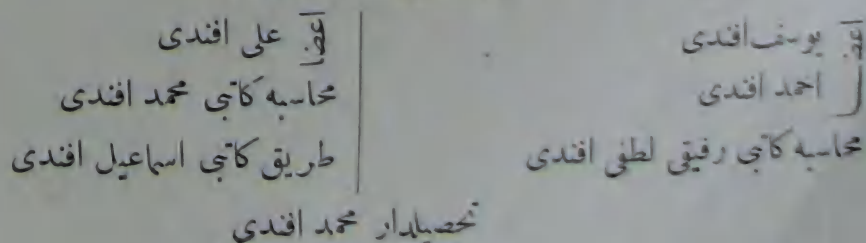 اعضا يوسف افندى
احمد افندى
محاسبه كاتبى رفيقى لطفى افندى
اعضا على افندى
محاسبه كاتبى محمد افندى
طريق كاتبى اسماعيل افندى
تحصيلدار محمد افندى